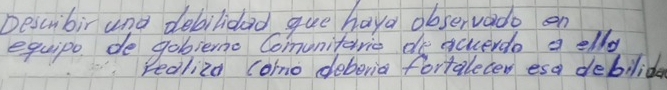 Describir una debilidad que haya observado en
equipo de gobierno Comunitario de acuerdo a ello
realiza como deberia fortalecer esa debilidad